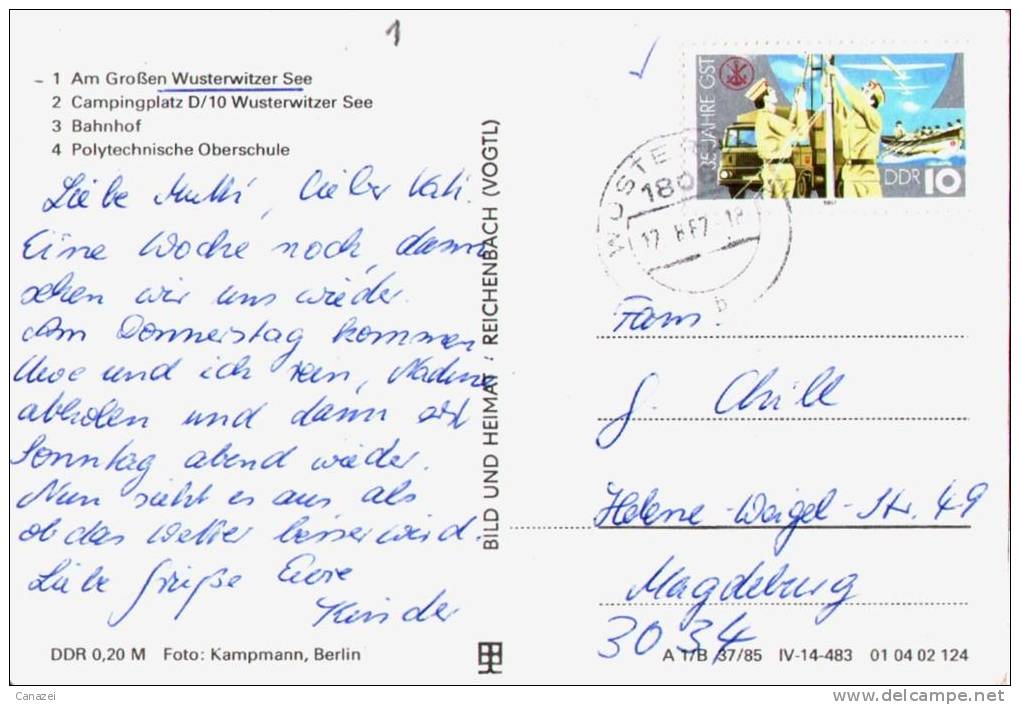 1
1 Am Großen Wusterwitzer See
2 Campingplatz D/10 Wusterwitzer See
3 Bahnhof
4 Polytechnische Oberschule
Liebe Mutti, lieber Vati.
Eine Woche noch, dann
sehen wir uns wieder.
Am Donnerstag kommen
Uwe und ich rein, Nadine
abholen und dann erst
Sonntag abend wieder.
Nun sieht es aus als
ob das Wetter besser wird.
Liebe Grüße Eure
Kinder
DDR 0,20 M Foto: Kampmann, Berlin
BILD UND HEIMAT · REICHENBACH (VOGTL)
35 JAHRE GST
DDR 10
WUSTER
180
Fam.
Helene-Weigel-Str. 49
Magdeburg
3034
A 1/B 37/85 IV-14-483 01 04 02 124
Canazei
www.delcampe.net